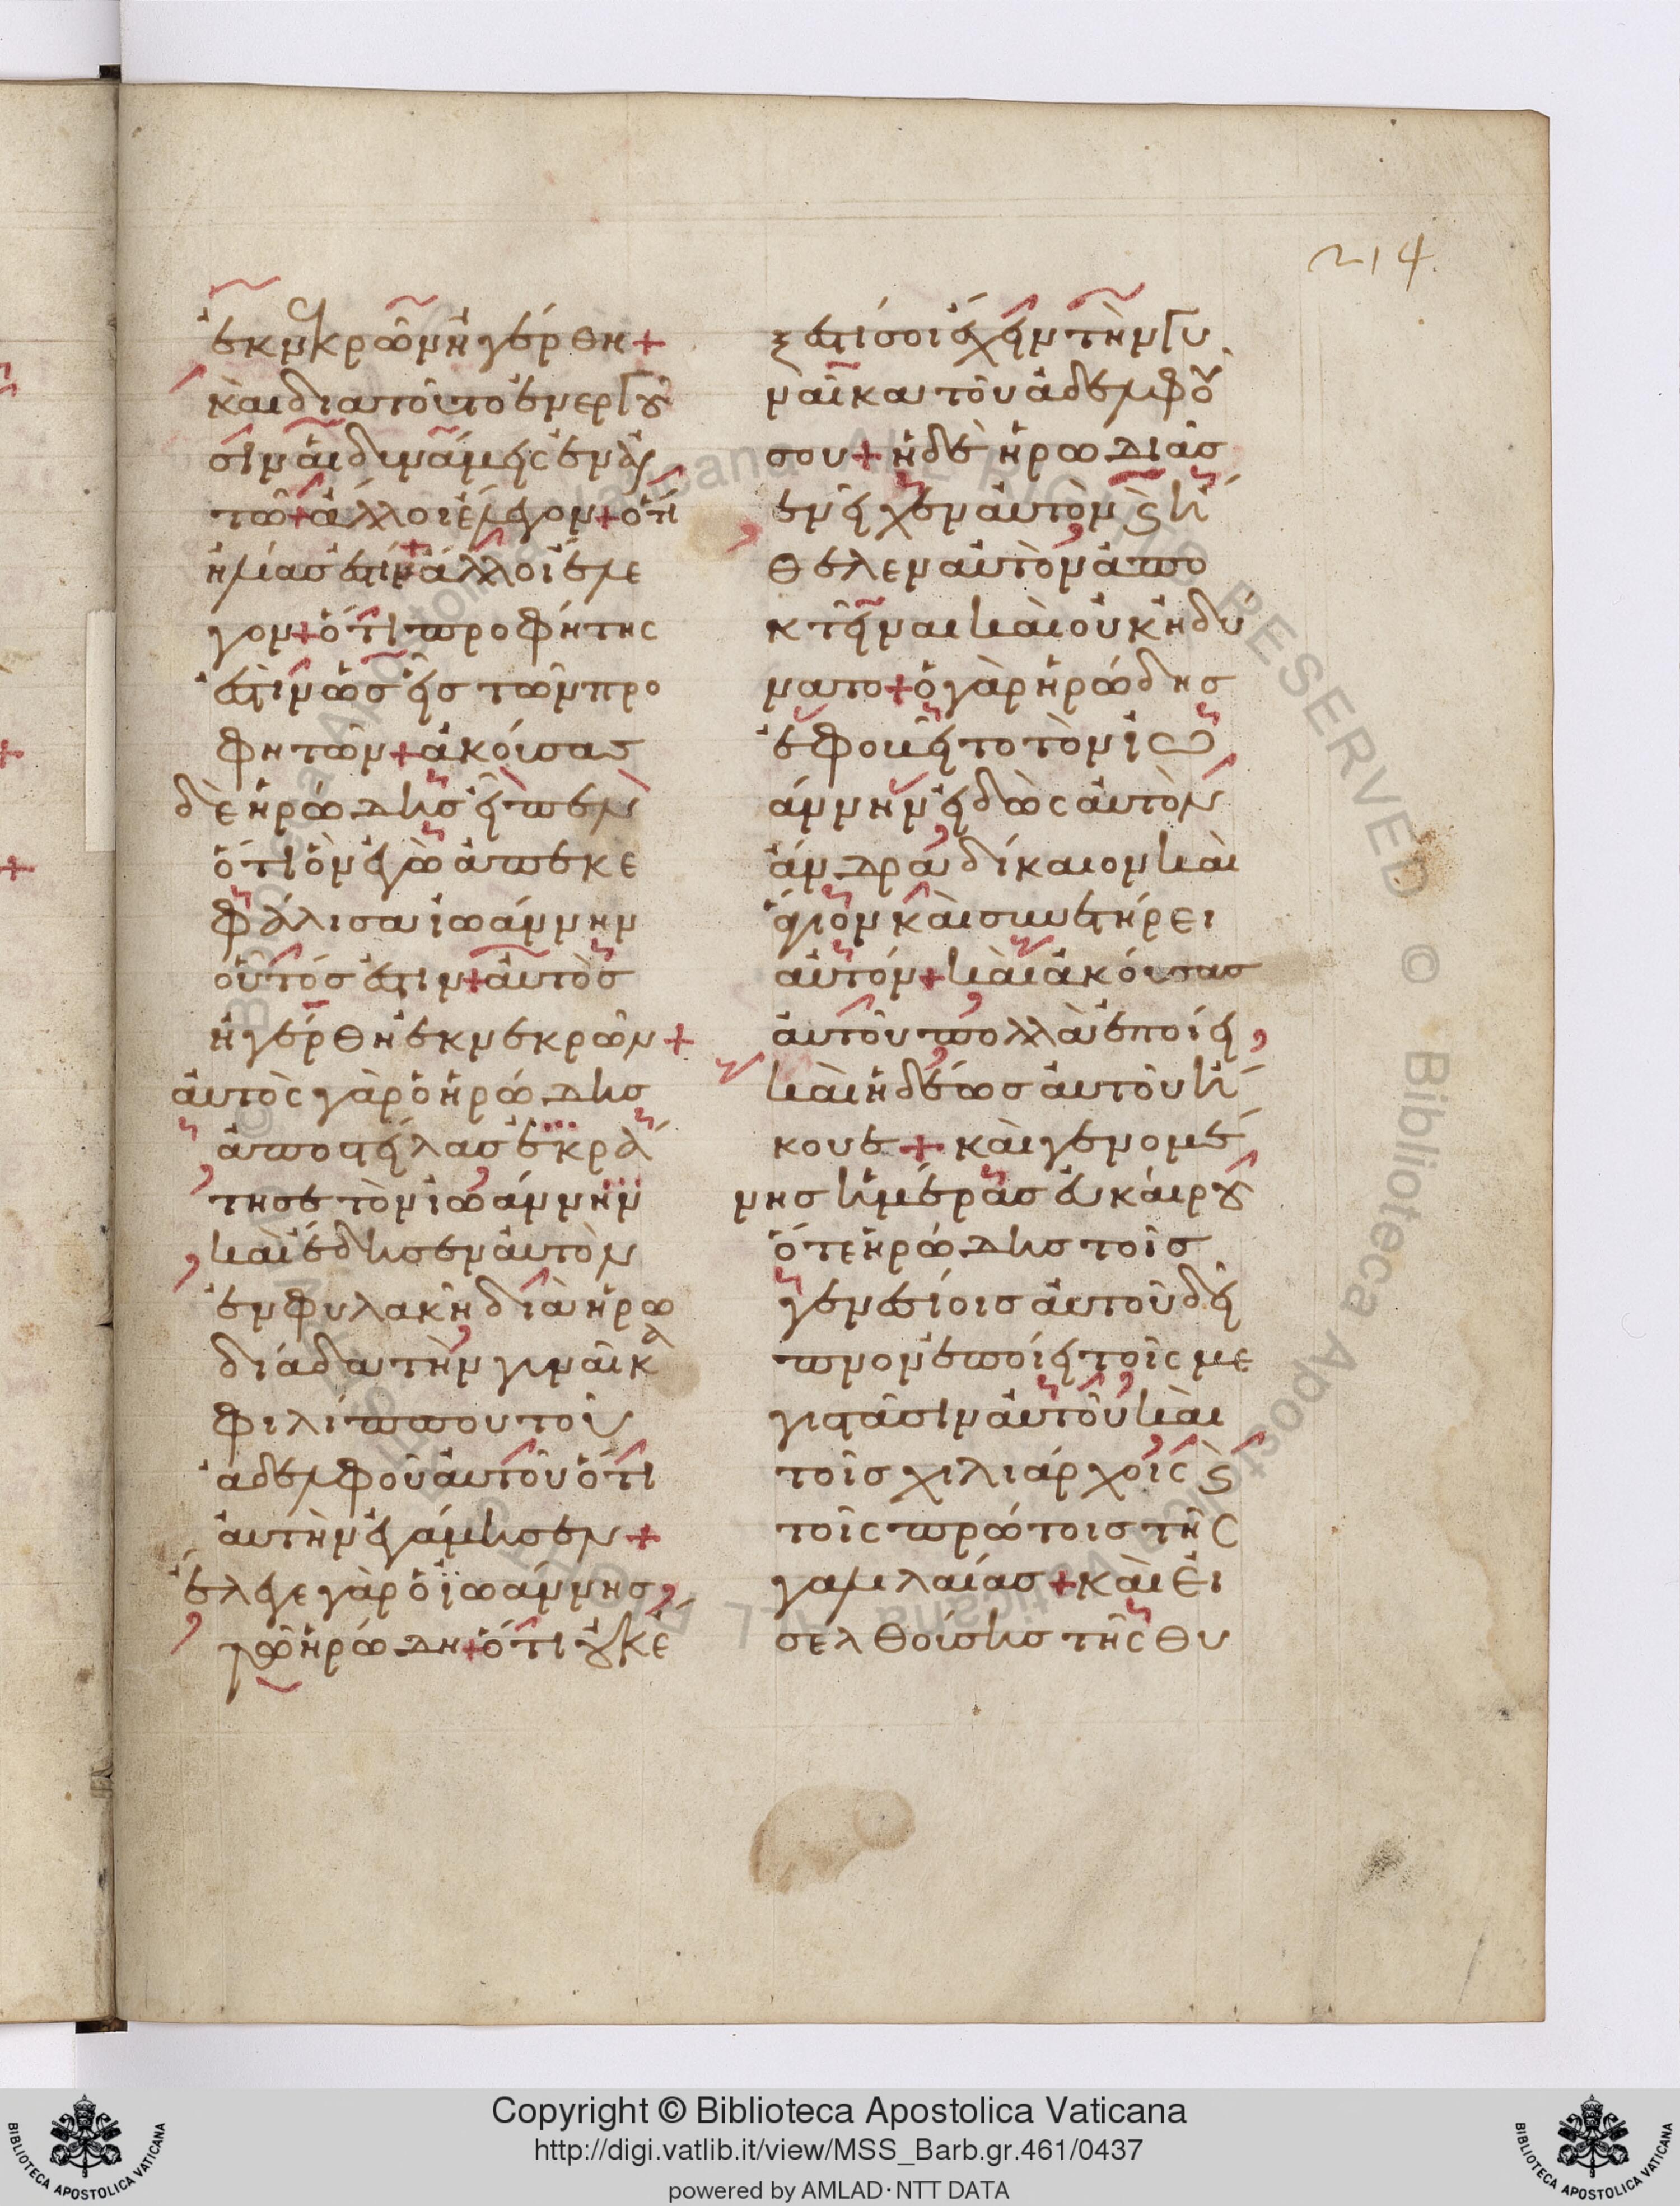 214.
ἐκ νεκρῶν ἠγέρθη +
καὶ διατοῦτο ἐνεργοῦ
σιν αἱ δυνάμεις ἐν αὐ
τῶ + ἄλλοι ἔλεγον + ὅτι
ἠλίας ἐστίν + ἄλλοι ἔλε
γον + ὅτι προφήτης
ἐστὶν ὡς εἷς τῶν προ
φητῶν + ἀκούσας
δὲ ἡρώδης εἶπεν
ὅτι ὃν ἐγὼ ἀπεκε
φάλισα ἰωάννην
οὗτός ἐστιν + αὐτὸς
ἠγέρθη ἐκ νεκρῶν +
αὐτὸς γὰρ ὁ ἡρώδης
ἀποστείλας ἐκρά
τησε τὸν ἰωάννην
καὶ ἔδησεν αὐτὸν
ἐν φυλακῆ διὰ ἡρω
διάδα τὴν γυναῖκα
φιλίππου τοῦ
ἀδελφοῦ αὐτοῦ ὅτι
αὐτὴν ἐγάμησεν +
ἔλεγε γὰρ ὁ ἰωάννης
τῶ ἡρώδη + ὅτι οὐκ ἔ
ξεστί σοι ἔχειν τὴν γυ
ναῖκα τοῦ ἀδελφοῦ
σου + ἡ δὲ ἡρωδιὰς
ἐνεῖχεν αὐτὸν ϗ ἤ
θελεν αὐτὸν ἀπο
κτεῖναι καὶ οὐκ ἠδύ
νατο + ὁ γὰρ ἡρώδης
ἐφοβεῖτο τὸν ἰω
άννην εἰδὼς αὐτὸν
ἄνδρα δίκαιον καὶ
ἅγιον καὶ συνετήρει
αὐτόν + καὶ ἀκούσας
αὐτοῦ πολλὰ ἐποίει
καὶ ἡδέως αὐτοῦ ἤ
κουε + καὶ γενομέ
νης ἡμέρας εὐκαίρου
ὅτε ἡρώδης τοῖς
γενεσίοις αὐτοῦ δεῖ
πνον ἐποίει τοῖς με
γιστᾶσιν αὐτοῦ καὶ
τοῖς χιλιάρχοις ϗ
τοῖς πρώτοις τῆς
γαλιλαίας + καὶ εἰ
σελθούσης τῆς θυ
Copyright © Biblioteca Apostolica Vaticana
http://digi.vatlib.it/view/MSS_Barb.gr.461/0437
powered by AMLAD·NTT DATA
BIBLIOTECA APOSTOLICA VATICANA
BIBLIOTECA APOSTOLICA VATICANA